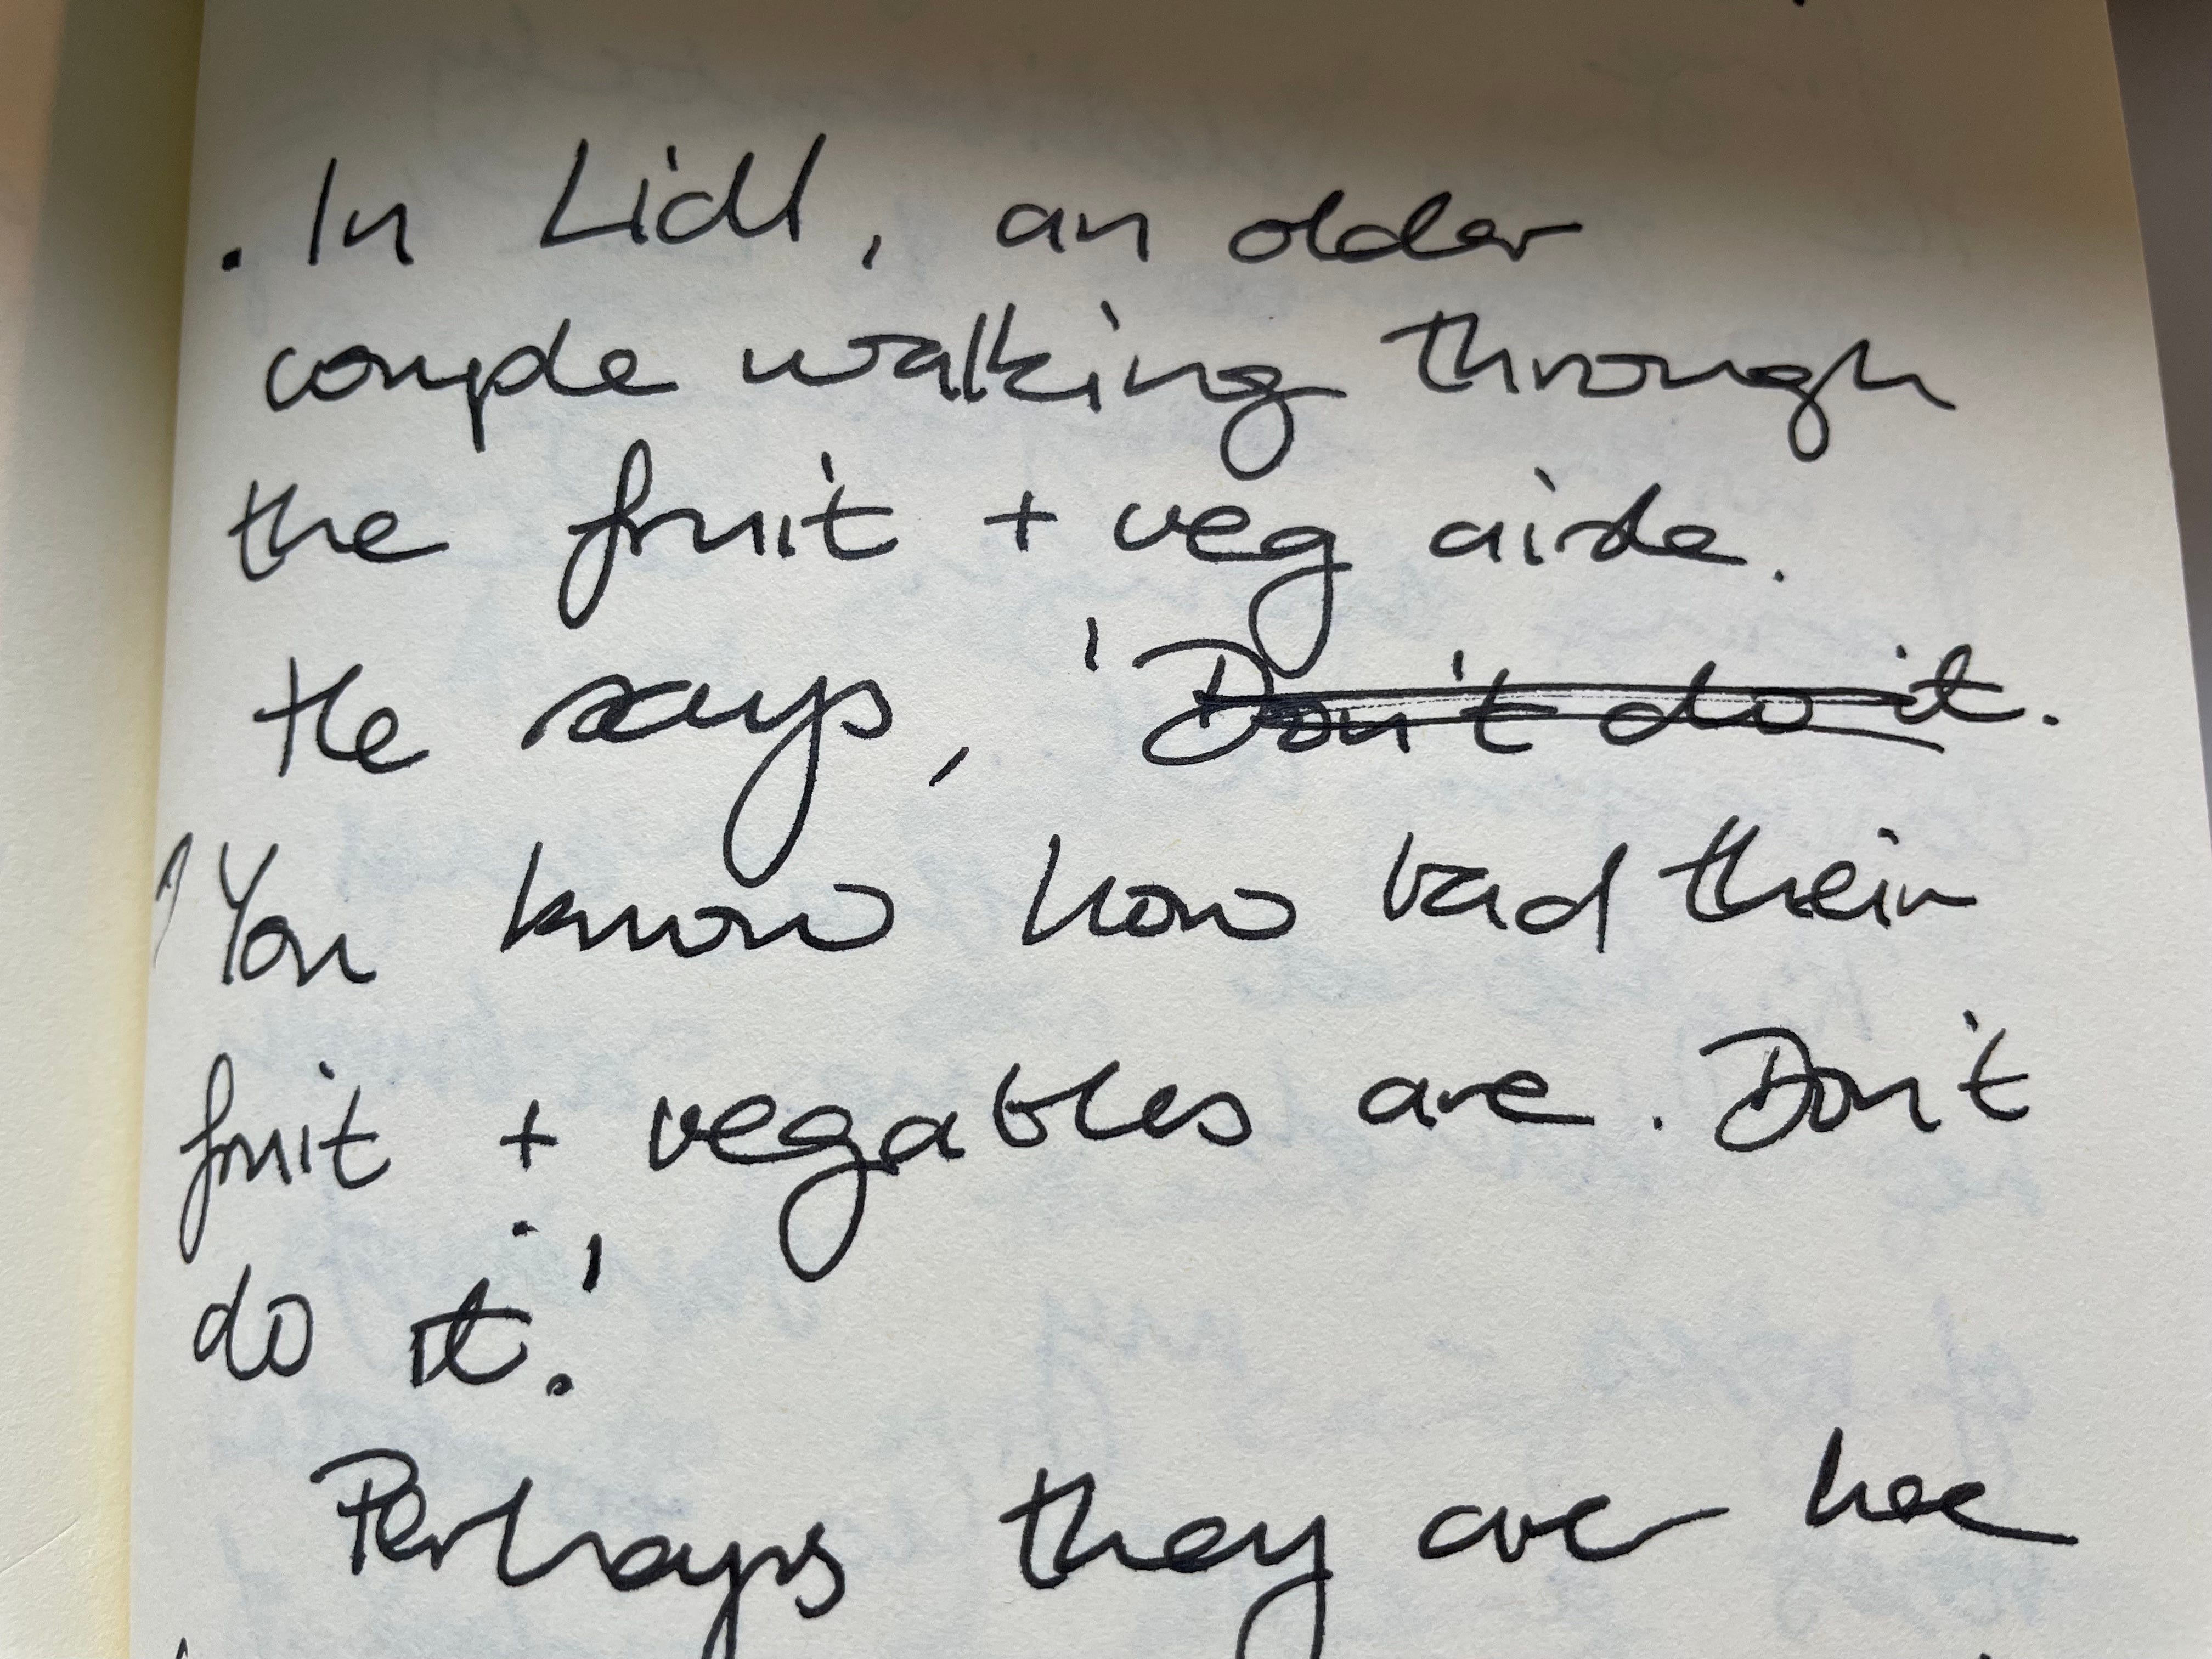 . In Lidl, an older
couple walking through
the fruit + veg aisle.
He says, 'Don't do it.
'You know how bad their
fruit + vegables are. Don't
do it.'
Perhaps they are